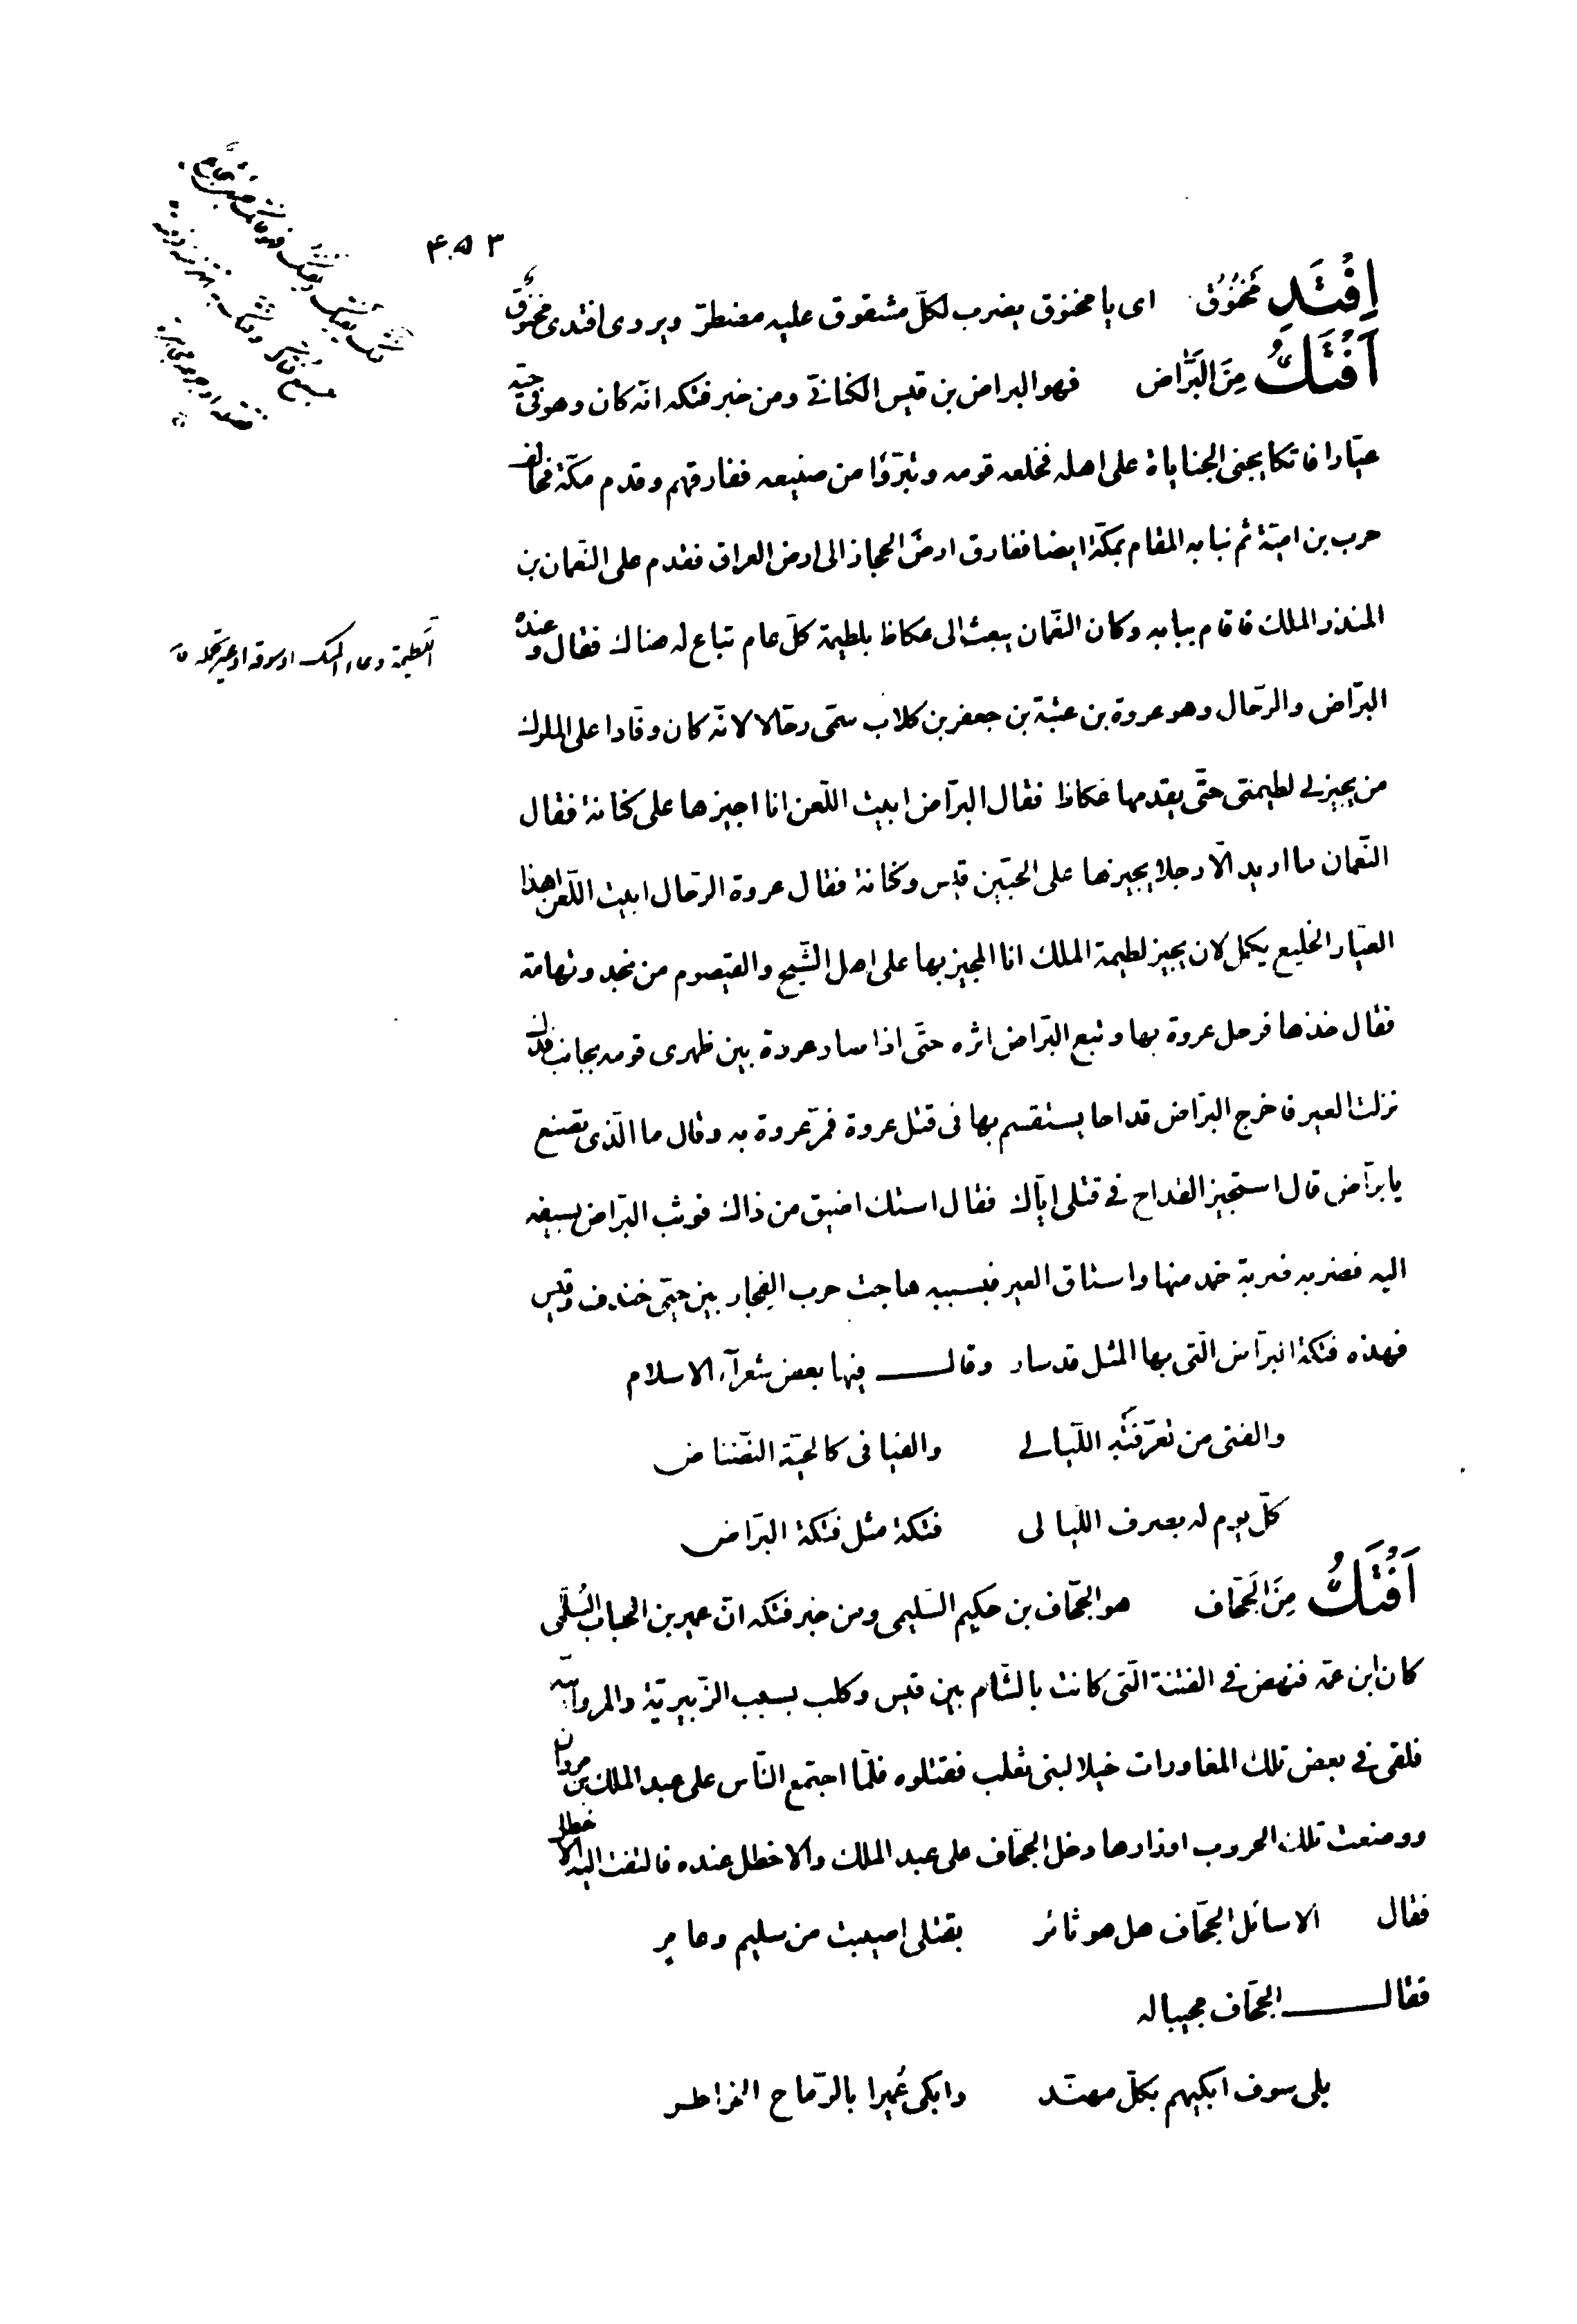 ۴۰۵۳
اِفْتَدِ مَخْنُوْقُ ای یا مخنوق یضرب لکلّ مشقوق علیه مضطرّ ویروی افتدی مخنوق
اَفْتَكُ مِنَ البَرَّاض فهو البراض بن قیس الکنانیّ ومن خبر فتکه انّه کان وهو فی حیّه
عیّارا فاتکا یجنی الجنایاة علی اهله فخلعه قومه وتبرّؤا من صنیعه ففارقهم وقدم مکّة فحالف
حرب بن امیّة ثم نبا به المقام بمکّة ایضا ففارق ارض الحجاز الی ارض العراق فقدم علی النّعمان بن
المنذر الملك فاقام ببابه وکان النّعمان یبعث الی عکاظ بلطیمة کلّ عام تباع له هناك فقال وعنده
البرّاض والرحّال وهو عروة بن عتبة بن جعفر بن کلاب سمّی رحّالا لانّه کان وفّادا علی الملوك
من یجیز لی لطیمتی حتّی یقدمها عکاظ فقال البرّاض ابیت اللّعن انا اجیزها علی کنانة فقال
النّعمان ما ارید الّا رجلا یجیزها علی الحیّین قیس وکنانة فقال عروة الرحّال ابیت اللّعن اهذا
العیّار الخلیع یکمل لان یجیز لطیمة الملك انا المجیز بها علی اهل الشّیح والقیصوم من نجد وتهامة
فقال خذها فرحل عروة بها وتبع البرّاض اثره حتّی اذا صار عروة بین ظهری قومه بجانب فدك
نزلت العیر فاخرج البرّاض قداحا یستقسم بها فی قتل عروة فمرّ عروة به وقال ما الّذی تصنع
یا برّاض قال استخیر القداح فی قتلی ایّاك فقال استك اضیق من ذاك فوثب البرّاض بسیفه
الیه فضربه ضربة خمد منها واستاق العیر فبسببه هاجت حرب الفجار بین حیّی خندف وقیس
فهذه فتکة البرّاض الّتی بها المثل قد سار وقال فیها بعض شعرآء الاسلام
والفتی من تعرّفته اللّیالی والفیافی کالحیّة النضناض
کلّ یوم له بصرف اللّیالی فتکة مثل فتکة البرّاض
اَفْتَكُ مِنَ الجَحَّاف هو الجحّاف بن حکیم السّلیمی ومن خبر فتکه انّ عمیر بن الحباب السُلَمی
کان ابن عمّه فنهض فی الفتنة الّتی کانت بالشّام بین قیس وکلب بسبب الزّبیریّة والمروانیّه
فلقی فی بعض تلك المغاورات خیلا لبنی تغلب فقتلوه فلمّا اجتمع النّاس علی عبد الملك بن مروان
ووضعت تلك الحروب اوزارها دخل الجحّاف علی عبد الملك والاخطل عنده فالتفت الیه الاخطل
فقال الا سائل الجحّاف هل هو ثائر بقتلی اصیبت من سلیم وعامر
فقال الجحّاف مجیبا له
بلی سوف ابکیهم بکلّ مهنّد وابکی عُمیرا بالرّماح الخواطر
اللّطیمة وعاء المسك او سوقه او عیر تحمله ق